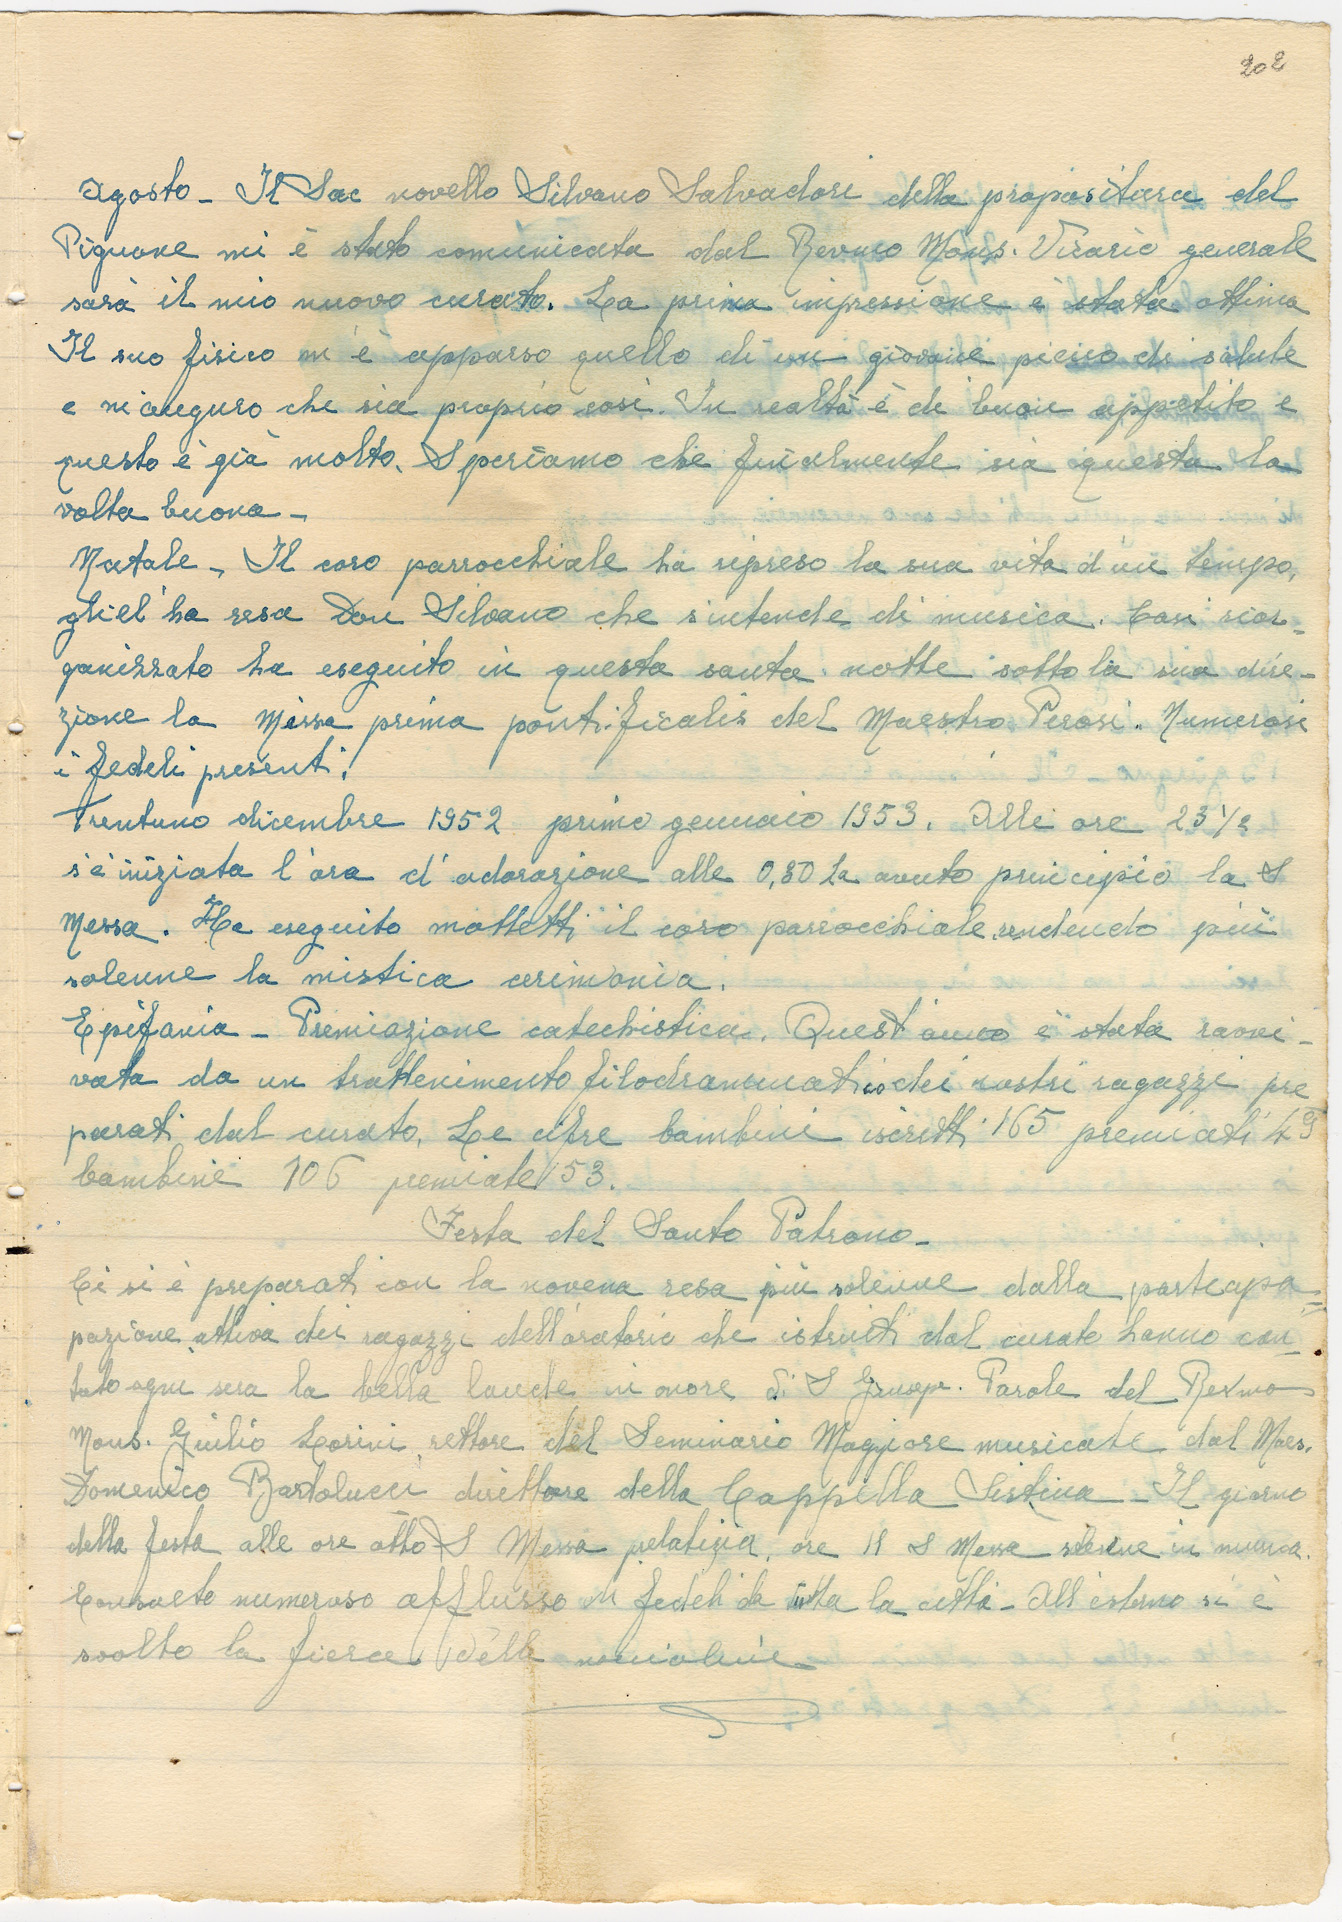 202
Agosto - Il Sac novello Silvano Salvadori della propositura del
Pignone mi è stato comunicata dal Revmo Mons. Vicario generale
sarà il mio nuovo curato. La prima impressione è stata ottima
Il suo fisico m'è apparso quello di un giovane pieno di salute
e mi auguro che sia proprio così. In realtà è di buon appetito e
questo è già molto. Speriamo che finalmente sia questa la
volta buona -
Natale - Il coro parrocchiale ha ripreso la sua vita d'un tempo,
gliel'ha resa Don Silvano che s'intende di musica. Così rior-
ganizzato ha eseguito in questa santa notte sotto la sua dire-
zione la Messa prima pontificalis del Maestro Perosi. Numerosi
i fedeli presenti.
Trentuno dicembre 1952 primo gennaio 1953. Alle ore 23 1/2
s'è iniziata l'ora d'adorazione alle 0,30 ha avuto principio la S
Messa. Ha eseguito mottetti il coro parrocchiale rendendo più
solenne la mistica cerimonia.
Epifania - Premiazione catechistica. Quest'anno è stata ravvi-
vata da un trattenimento filodrammatico dei nostri ragazzi pre
parati dal curato. Le cifre bambini iscritti 165 premiati 49
bambine 106 premiate 53.
Festa del Santo Patrono -
Ci si è preparati con la novena resa più solenne dalla partecipa=
pazione attiva dei ragazzi dell'oratorio che istruiti dal curato hanno can-
tato ogni sera la bella laude in onore di S Giuseppe. Parole del Revmo
Mons. Giulio Lorini rettore del Seminario Maggiore musicate dal Maes.
Domenico Bartolucci direttore della Cappella Sistina - Il giorno
della festa alle ore otto S Messa prelatizia, ore 11 S Messa solenne in musica.
Consueto numeroso afflusso di fedeli da tutta la città - All'esterno si è
svolto la fiera delle